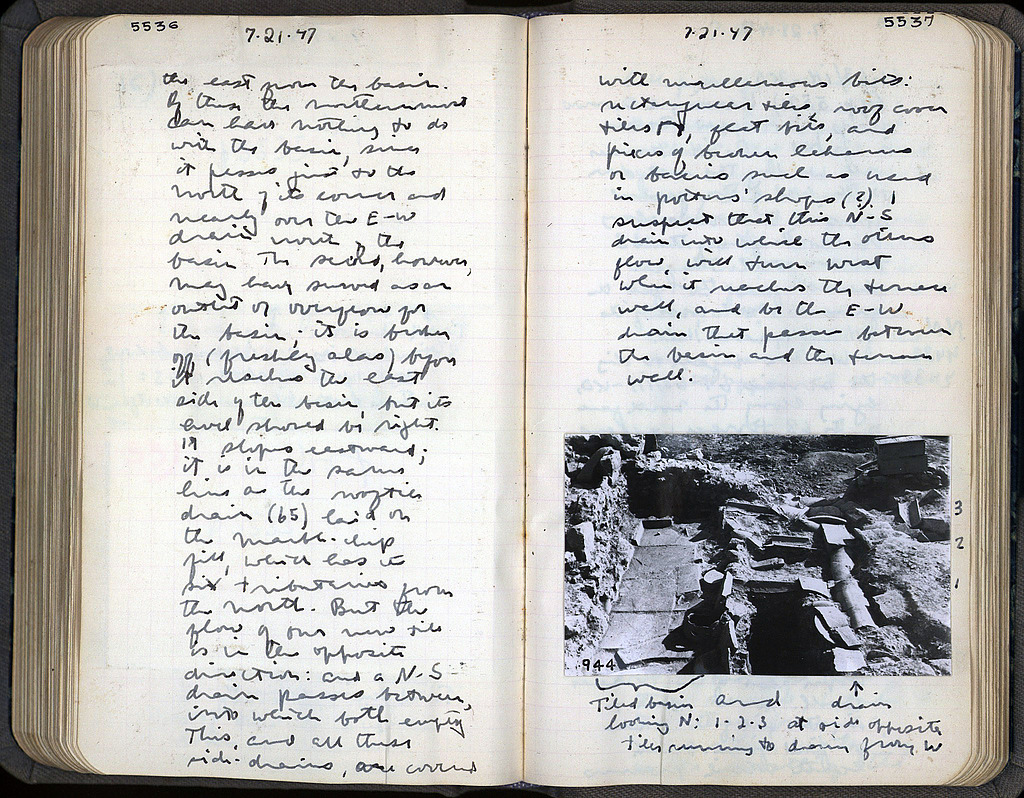 5536
7·21·47
the east from the basin.
Of these the northernmost
can have nothing to do
with the basin, since
it passes just to the
north of its corner and
nearly over the E-W
drain north of the
basin. The second, however,
may have served as an
outlet or overflow for
the basin; it is broken
off (freshly alas) before
it reaches the east
side of the basin, but its
level should be right.
It slopes eastward;
it is in the same
line as the
drain (65) laid on
the marble-chip
fill, which has its
six tributaries from
the north. But the
flow of our new tile
is in the opposite
direction: and a N-S
drain passes between,
into which both empty.
This, and all these
side-drains, are covered
5537
7·21·47
with miscellaneous bits:
rectangular tiles, roof cover
tiles, flat bits, and
pieces of broken lekanes
or basins such as used
in potters' shops (?). I
suspect that this N-S
drain into which the others
flow, will turn west
when it reaches the terrace
wall, and be the E-W
drain that passes between
the basin and the terrace
wall.
3
2
1
944
Tiled basin and drain
looking N: 1-2-3 at side opposite
tiles running to drain from W